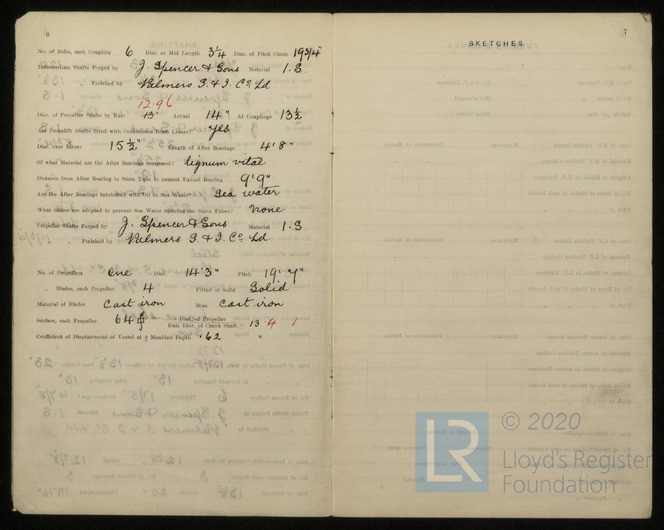 6
No. of Bolts, each Coupling 6 Diar. at Mid Length 3¼ Diar. of Pitch Circle 19¾"
Intermediate Shafts Forged by J. Spencer & Sons Material I.S
" Finished by Palmers S. & I. Co. Ld
12.96
Diar. of Propeller Shafts by Rule 13" Actual 14" At Couplings 13½
Are Propeller Shafts fitted with Continuous Brass Liners? Yes
Diar. over Liners 15½" Length of After Bearings 4'8"
Of what Material are the After Bearings composed? lignum vitae
Distance from After Bearing in Stern Tube to nearest Tunnel Bearing 9'9"
Are the After Bearings lubricated with Oil or Sea Water? Sea water
What means are adopted to prevent Sea Water entering the Stern Tubes? None
Propeller Shafts Forged by J. Spencer & Sons Material I.S
" Finished by Palmers S. & I. Co. Ld
No. of Propellers One Diar. 14'3" Pitch 19'7"
" Blades, each Propeller 4 Fitted or Solid Solid
Material of Blades Cast iron Boss Cast iron
Surface, each Propeller 64 Diar. of Propeller
Rule Diar. of Crank Shaft 13.4
Coefficient of Displacement of Vessel at ¾ Moulded Depth .62
7
SKETCHES
LR
© 2020
Lloyd's Register
Foundation